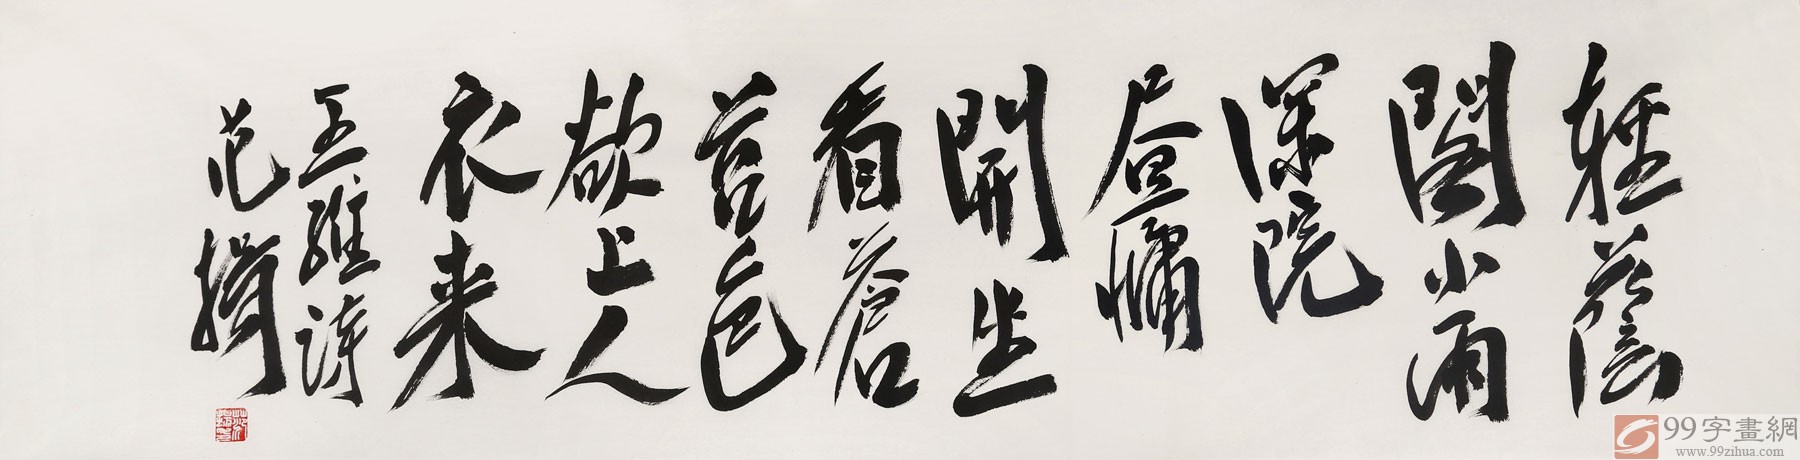 輕蔭
閣小雨
深院
昼慵
開坐
看蒼
苔色
欲上人
衣来
王維詩
范
99字畫網
www.99zihua.com